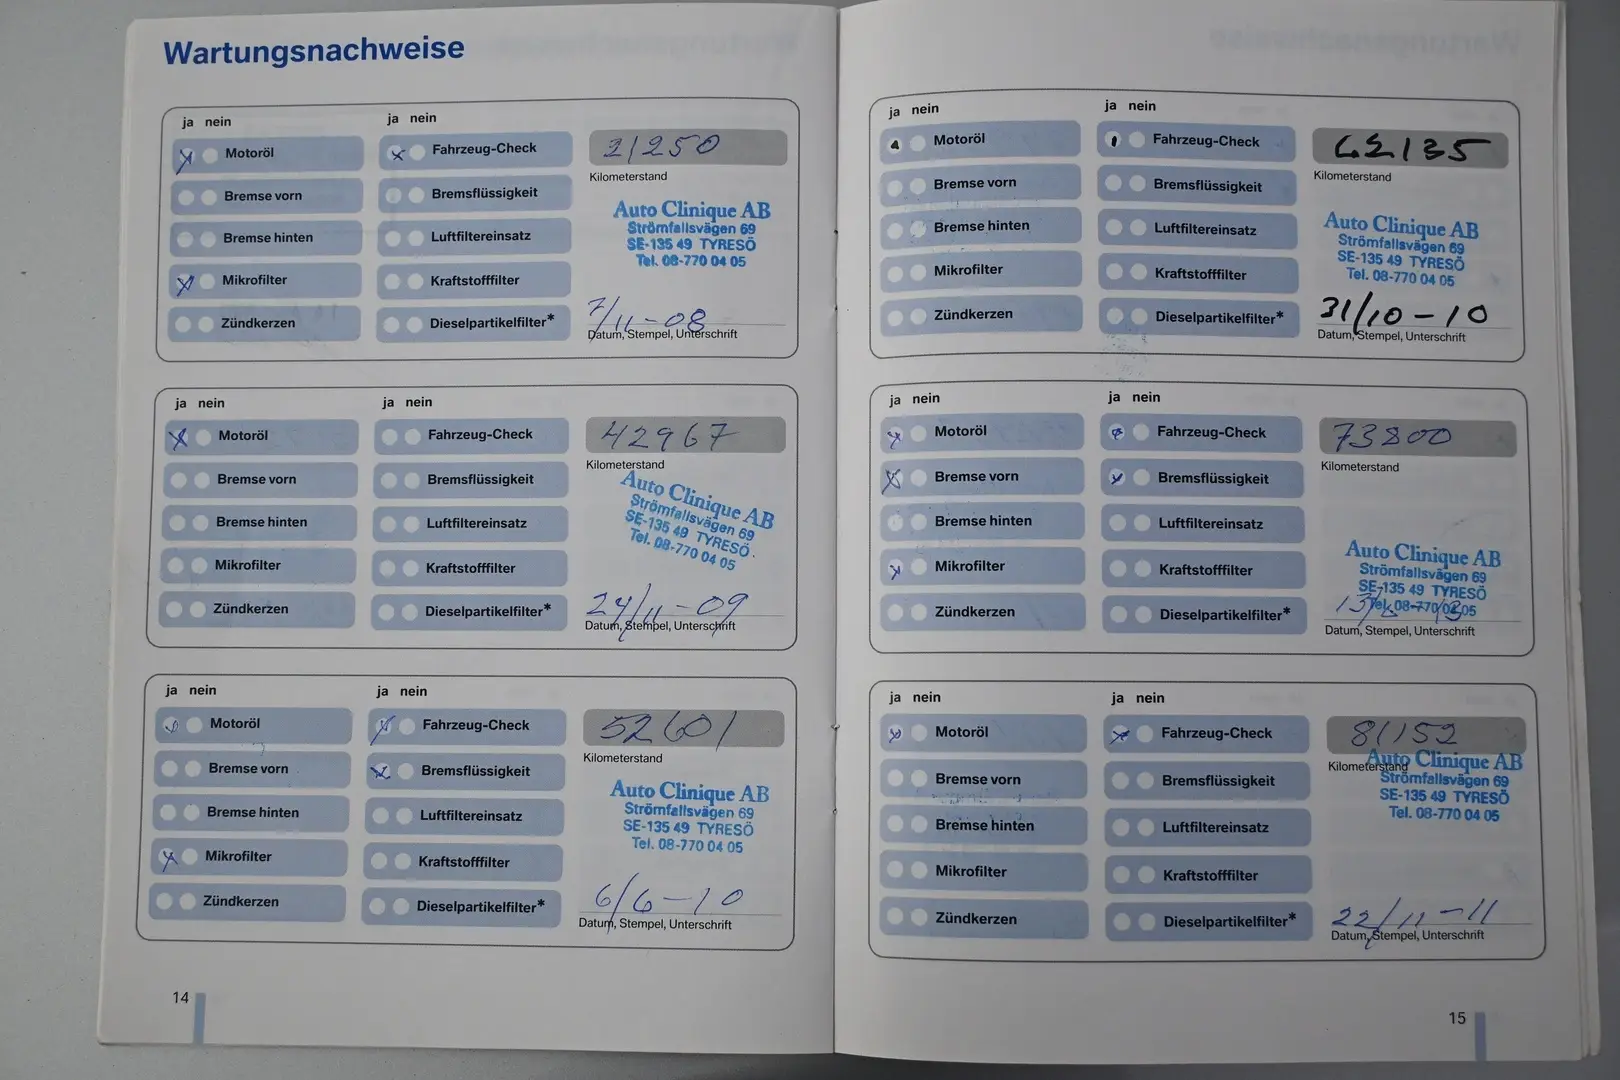 Wartungsnachweise
ja nein
ja nein
Motoröl
Fahrzeug-Check
21250
Bremse vorn
Bremsflüssigkeit
Kilometerstand
Bremse hinten
Luftfiltereinsatz
Auto Clinique AB
Strömfallsvägen 69
SE-135 49 TYRESÖ
Tel. 08-770 04 05
Mikrofilter
Kraftstofffilter
Zündkerzen
Dieselpartikelfilter*
7/11-08
Datum, Stempel, Unterschrift
ja nein
ja nein
Motoröl
Fahrzeug-Check
42967
Bremse vorn
Bremsflüssigkeit
Kilometerstand
Bremse hinten
Luftfiltereinsatz
Auto Clinique AB
Strömfallsvägen 69
SE-135 49 TYRESÖ.
Tel. 08-770 04 05
Mikrofilter
Kraftstofffilter
Zündkerzen
Dieselpartikelfilter*
24/11-09
Datum, Stempel, Unterschrift
ja nein
ja nein
Motoröl
Fahrzeug-Check
52601
Bremse vorn
Bremsflüssigkeit
Kilometerstand
Bremse hinten
Luftfiltereinsatz
Auto Clinique AB
Strömfallsvägen 69
SE-135 49 TYRESÖ
Tel. 08-770 04 05
Mikrofilter
Kraftstofffilter
Zündkerzen
Dieselpartikelfilter*
6/6-10
Datum, Stempel, Unterschrift
14
ja nein
ja nein
Motoröl
Fahrzeug-Check
Bremse vorn
Bremsflüssigkeit
Kilometerstand
Bremse hinten
Luftfiltereinsatz
Auto Clinique AB
Strömfallsvägen 69
SE-135 49 TYRESÖ
Tel. 08-770 04 05
Mikrofilter
Kraftstofffilter
Zündkerzen
Dieselpartikelfilter*
31/10-10
Datum, Stempel, Unterschrift
ja nein
ja nein
Motoröl
Fahrzeug-Check
73800
Bremse vorn
Bremsflüssigkeit
Kilometerstand
Bremse hinten
Luftfiltereinsatz
Auto Clinique AB
Strömfallsvägen 69
SE-135 49 TYRESÖ
Tel. 08-770 04 05
Mikrofilter
Kraftstofffilter
Zündkerzen
Dieselpartikelfilter*
Datum, Stempel, Unterschrift
ja nein
ja nein
Motoröl
Fahrzeug-Check
81152
Bremse vorn
Bremsflüssigkeit
Kilometerstand
Bremse hinten
Luftfiltereinsatz
Auto Clinique AB
Strömfallsvägen 69
SE-135 49 TYRESÖ
Tel. 08-770 04 05
Mikrofilter
Kraftstofffilter
Zündkerzen
Dieselpartikelfilter*
22/11-11
Datum, Stempel, Unterschrift
15